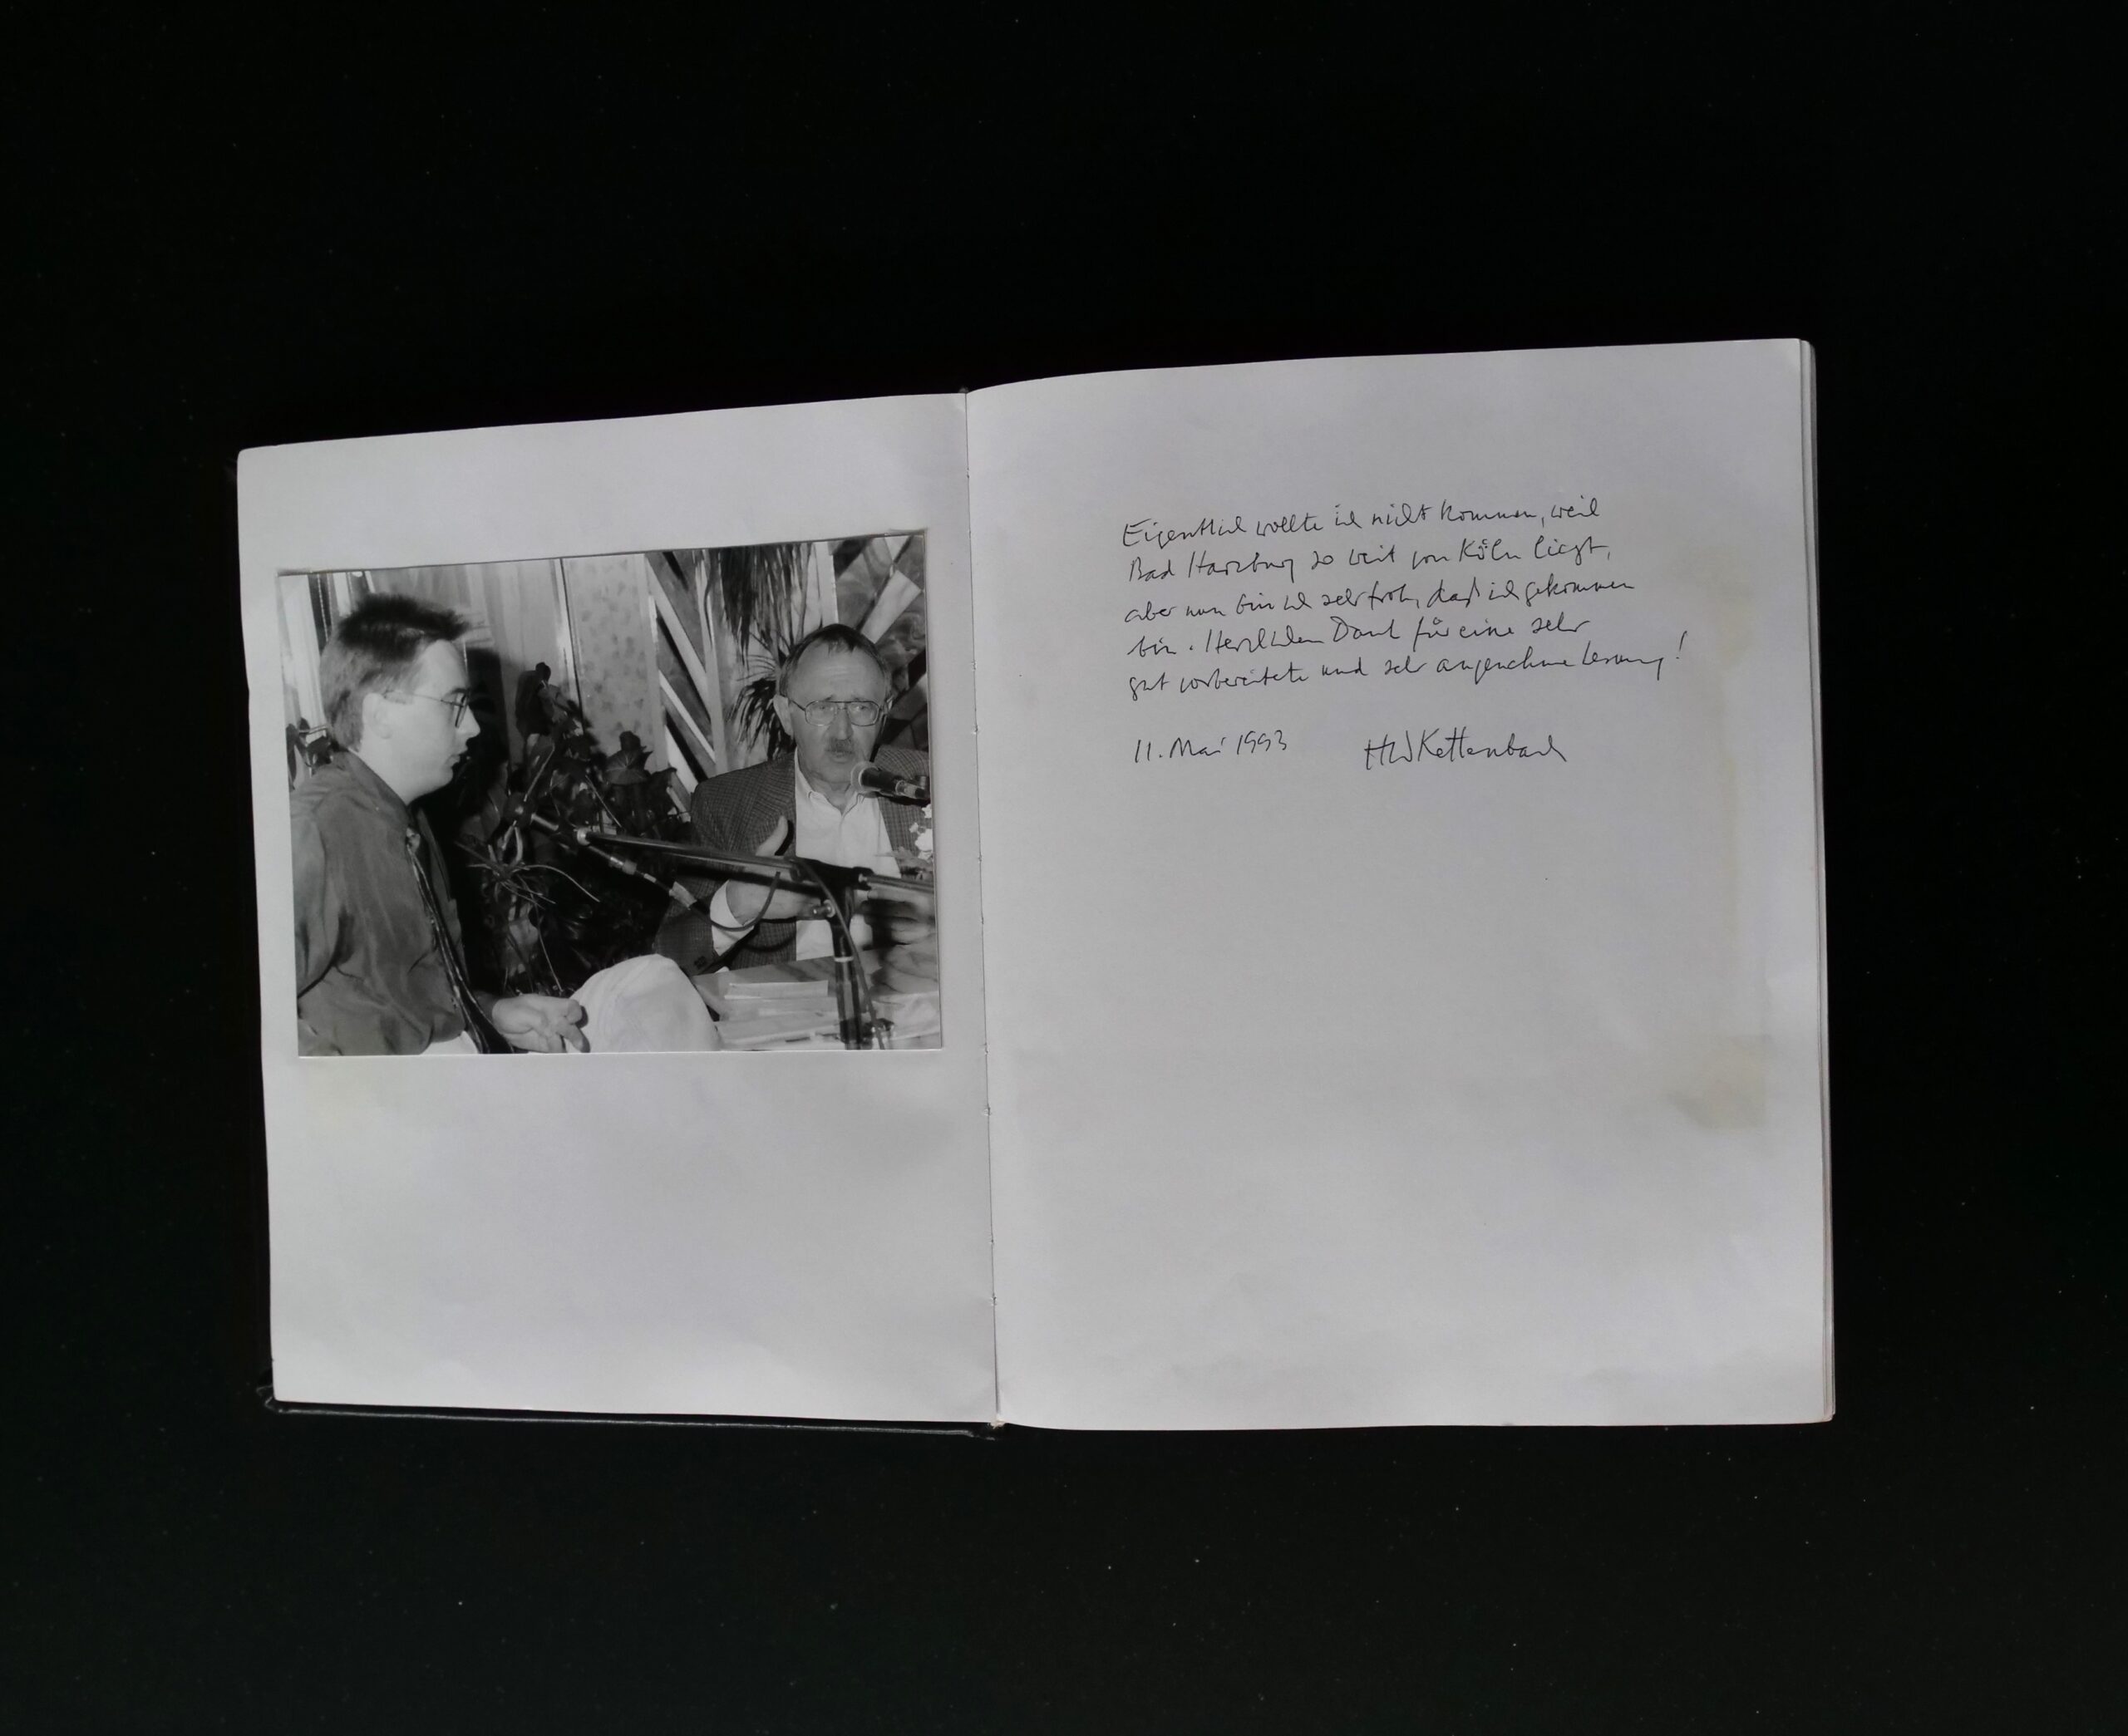 Eigentlich wollte ich nicht kommen, weil
Bad Harzburg so weit von Köln liegt,
aber nun bin ich sehr froh, daß ich gekommen
bin. Herzlichen Dank für eine sehr
gut vorbereitete und sehr angenehme Lesung!
11. Mai 1993 HWKettenbach